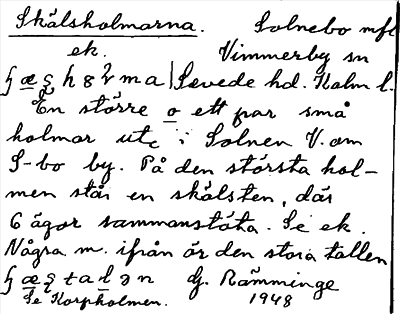 Skälsholmarna. Solnebo mfl
ek. Vimmerby sn
Sevede hd. Kalm l.
En större o ett par små
holmar ute i Solnen V. om
S-bo by. På den största hol-
men står en skälsten, där
6 ägor sammanstöta. Se ek.
Några m. ifrån är den stora tallen
Rämminge
Se Korpholmen. 1948